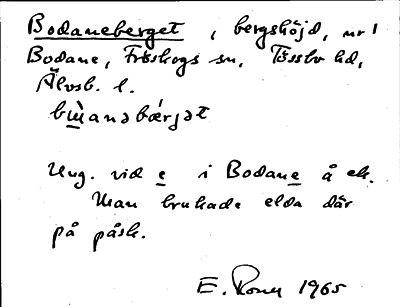 Bodaneberget, bergshöjd, nr 1
Bodane, Fröskogs sn, Tössbo hd,
Älvsb. l.
Ung. vid e i Bodane å ek.
Man brukade elda där
på påsk.
E. 1965